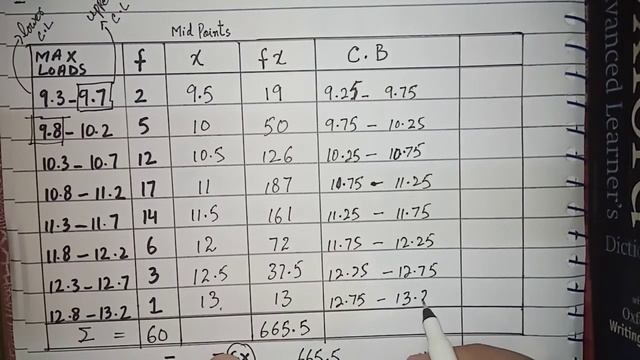 lower C.L
upper C.L
Mid Points
MAX LOADS f x fx C.B
9.3-9.7 2 9.5 19 9.25 - 9.75
9.8-10.2 5 10 50 9.75 - 10.25
10.3-10.7 12 10.5 126 10.25 - 10.75
10.8-11.2 17 11 187 10.75 - 11.25
11.3-11.7 14 11.5 161 11.25 - 11.75
11.8-12.2 6 12 72 11.75 - 12.25
12.3-12.7 3 12.5 37.5 12.25 - 12.75
12.8-13.2 1 13 13 12.75 - 13.2
Σ = 60 665.5
665.5
Advanced Learner's
Writing